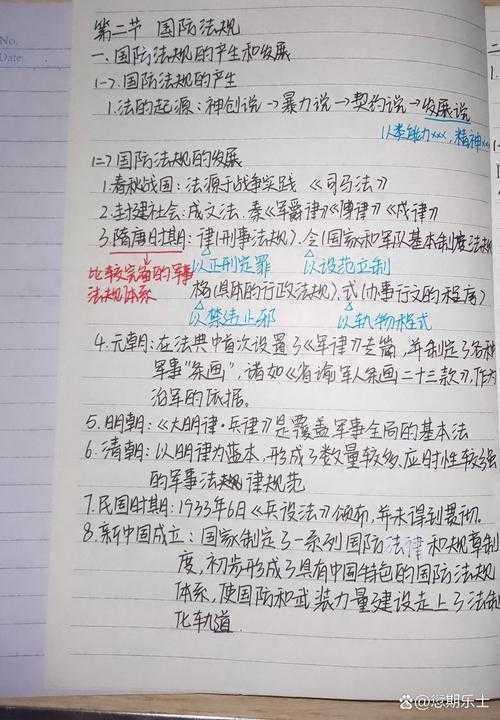 No.
Date
第二节 国防法规
一.国防法规的产生和发展
(一).国防法规的产生
1.法的起源:神创说→暴力说→契约说→发展说
以综能力xxx,精神xx
(二)国防法规的发展
1.春秋战国:法源于战争实践《司马法》
2.封建社会:成文法.秦《军爵律》《傅律》《戍律》
3.隋唐时期:律(刑事法规).令(国家和军队基本制度法规
比较完备的军事 以正刑定罪 以设范立制
法规体系 格(具体的行政法规).式(办事行文的程序)
以禁违止邪 以轨物程式
4.元朝:在法典中首次设置了《军律》专篇,并制定了各种
军事"条画",诸如《省谕军人条画二十三款》,作为
治军的依据.
5.明朝:《大明律·兵律》是覆盖军事全局的基本法
6.清朝:以明律为蓝本,形成了数量较多,应时性较强
的军事法规律规范
7.民国时期:1933年6日《兵设法》颁布,并未得到贯彻.
8.新中国成立:国家制定了一系列国防法律和规章制
度,初步形成了具有中国特色的国防法规
体系,使国防和武装力量建设走上了法制
化轨道.
@愆期乐士